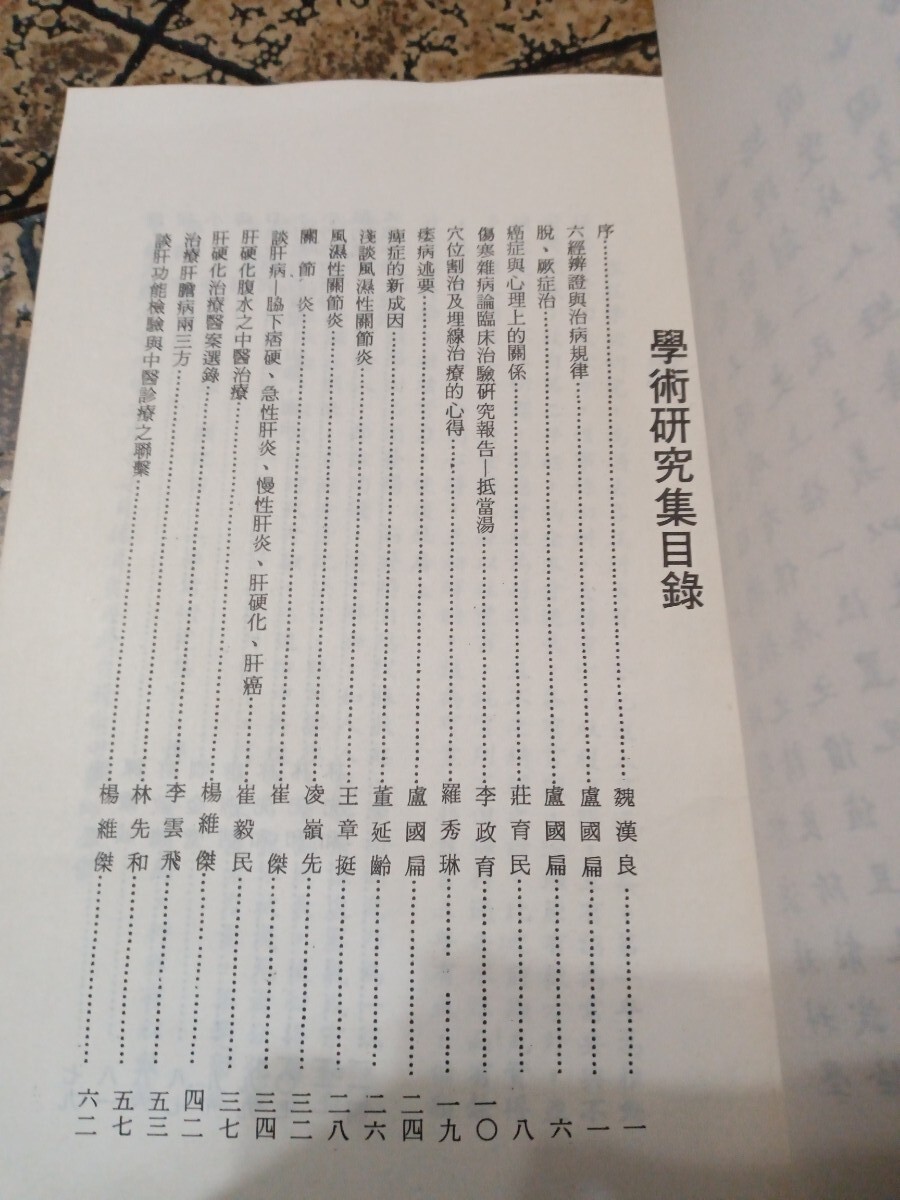 學術研究集目錄
序……魏漢良……一
六經辨證與治病規律……盧國扁……一
脫、厥症治……盧國扁……六
癌症與心理上的關係……莊育民……八
傷寒雜病論臨床治驗研究報告—抵當湯……李政育……一〇
穴位割治及埋線治療的心得……羅秀琳……一九
痿病述要……盧國扁……二四
痺症的新成因……董延齡……二六
淺談風濕性關節炎……王章挺……二八
風濕性關節炎……凌嶺先……三二
關節炎……崔傑……三四
談肝病—脇下痞硬、急性肝炎、慢性肝炎、肝硬化、肝癌……崔毅民……三七
肝硬化腹水之中醫治療……楊維傑……四二
肝硬化治療醫案選錄……李雲飛……五三
治療肝膽病兩三方……林先和……五七
談肝功能檢驗與中醫診療之聯繫……楊維傑……六二